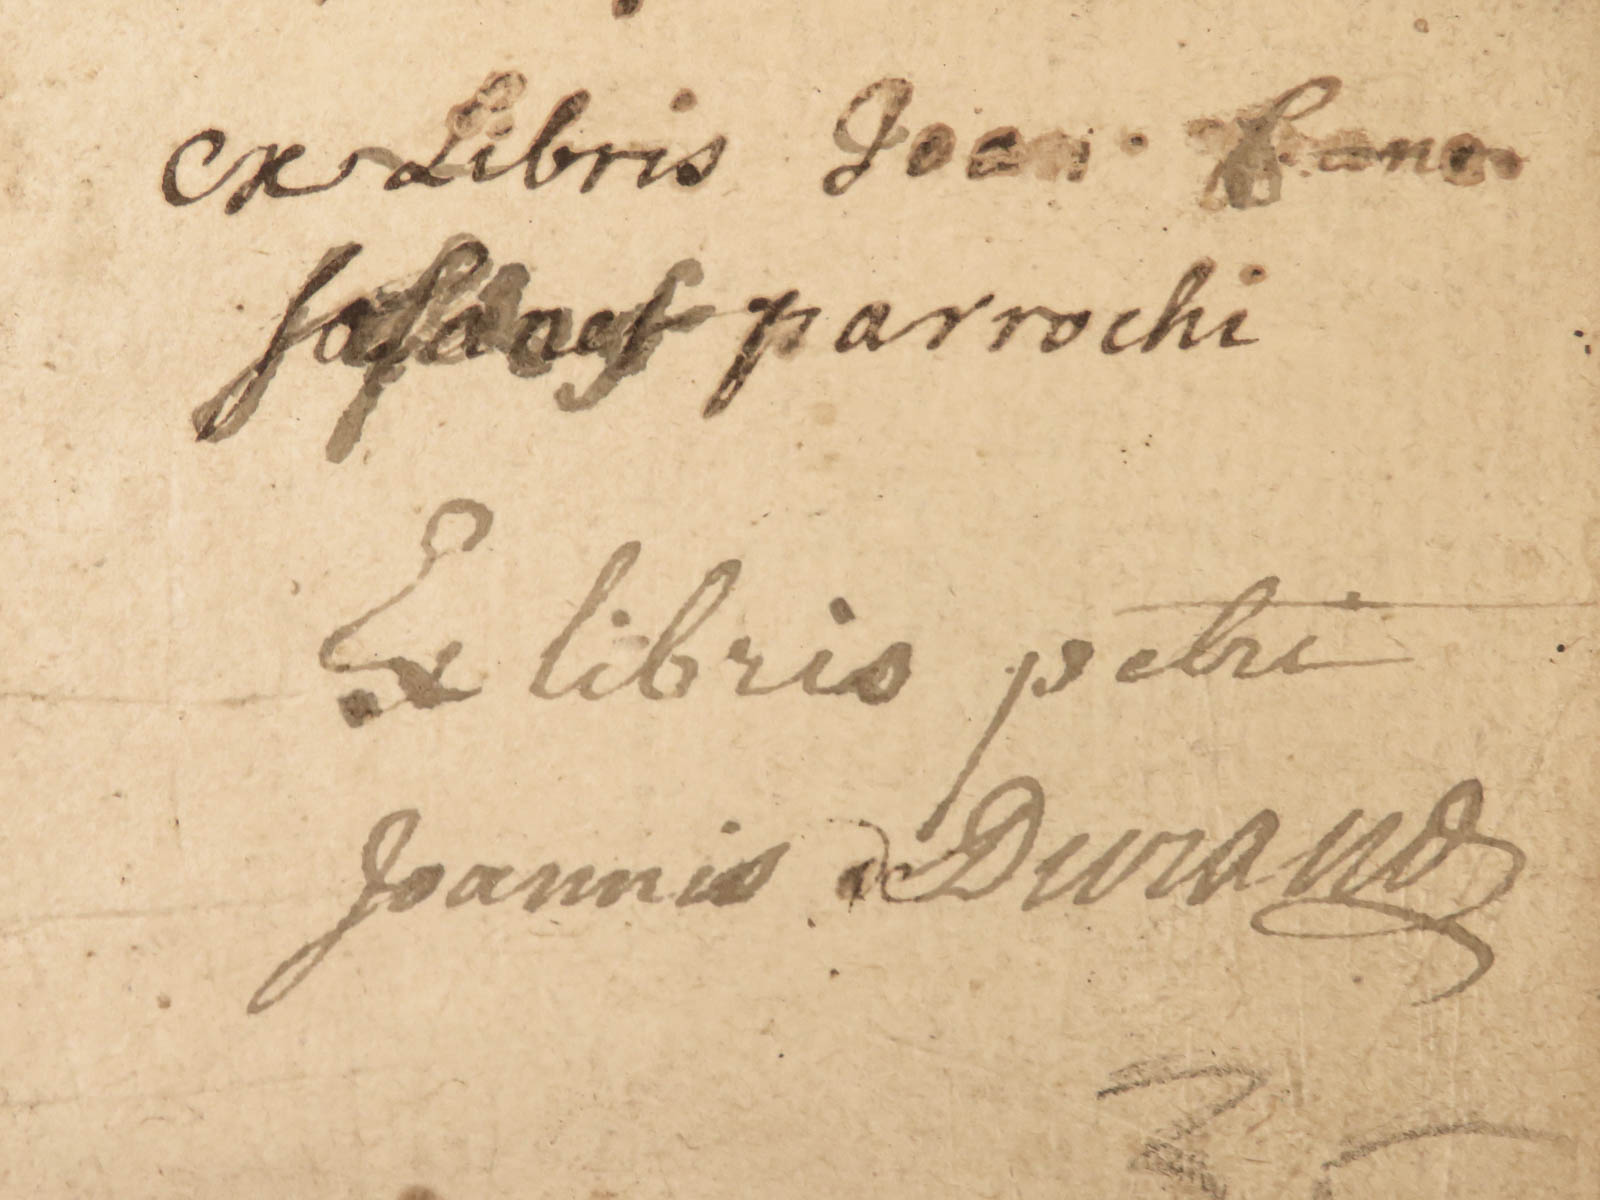 ex Libris Joan.
parrochi
Ex libris petri
Joannis de Durand